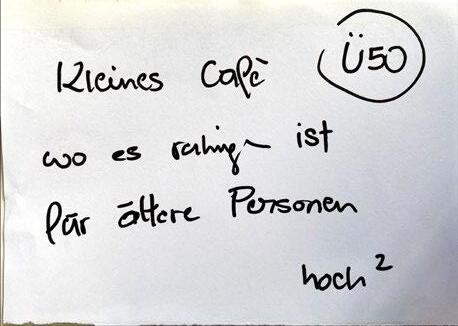 Kleines Café
Ü50
wo es ruhiger ist
für ältere Personen
hoch²